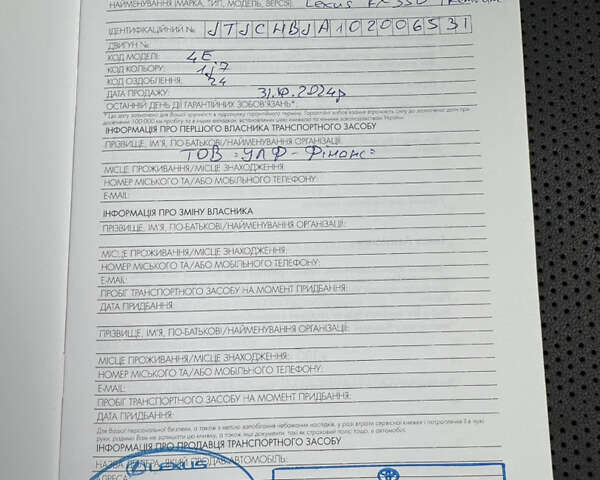 НАЙМЕНУВАННЯ (МАРКА, ТИП, МОДЕЛЬ, ВЕРСІЯ): Lexus RX 350
ІДЕНТИФІКАЦІЙНИЙ № JTJCHBJA102006531
ДВИГУН №:
КОД МОДЕЛІ: 4E
КОД КОЛЬОРУ: 1J7
КОД ОЗДОБЛЕННЯ: 24
ДАТА ПРОДАЖУ: 31.10.2024р
ОСТАННІЙ ДЕНЬ ДІЇ ГАРАНТІЙНИХ ЗОБОВ'ЯЗАНЬ*:
ІНФОРМАЦІЯ ПРО ПЕРШОГО ВЛАСНИКА ТРАНСПОРТНОГО ЗАСОБУ
ПРІЗВИЩЕ, ІМ'Я, ПО-БАТЬКОВІ/НАЙМЕНУВАННЯ ОРГАНІЗАЦІЇ:
ТОВ "УЛФ-Фінанс"
МІСЦЕ ПРОЖИВАННЯ/МІСЦЕ ЗНАХОДЖЕННЯ:
НОМЕР МІСЬКОГО ТА/АБО МОБІЛЬНОГО ТЕЛЕФОНУ:
E-MAIL:
ІНФОРМАЦІЯ ПРО ЗМІНУ ВЛАСНИКА
ПРІЗВИЩЕ, ІМ'Я, ПО-БАТЬКОВІ/НАЙМЕНУВАННЯ ОРГАНІЗАЦІЇ:
МІСЦЕ ПРОЖИВАННЯ/МІСЦЕ ЗНАХОДЖЕННЯ:
НОМЕР МІСЬКОГО ТА/АБО МОБІЛЬНОГО ТЕЛЕФОНУ:
E-MAIL:
ПРОБІГ ТРАНСПОРТНОГО ЗАСОБУ НА МОМЕНТ ПРИДБАННЯ:
ДАТА ПРИДБАННЯ:
ПРІЗВИЩЕ, ІМ'Я, ПО-БАТЬКОВІ/НАЙМЕНУВАННЯ ОРГАНІЗАЦІЇ:
МІСЦЕ ПРОЖИВАННЯ/МІСЦЕ ЗНАХОДЖЕННЯ:
НОМЕР МІСЬКОГО ТА/АБО МОБІЛЬНОГО ТЕЛЕФОНУ:
E-MAIL:
ПРОБІГ ТРАНСПОРТНОГО ЗАСОБУ НА МОМЕНТ ПРИДБАННЯ:
ДАТА ПРИДБАННЯ:
ІНФОРМАЦІЯ ПРО ПРОДАВЦЯ ТРАНСПОРТНОГО ЗАСОБУ
НАЗВА ДИЛЕРА, ЯКИЙ ПРОДАВ АВТОМОБІЛЬ:
LEXUS
АДРЕСА